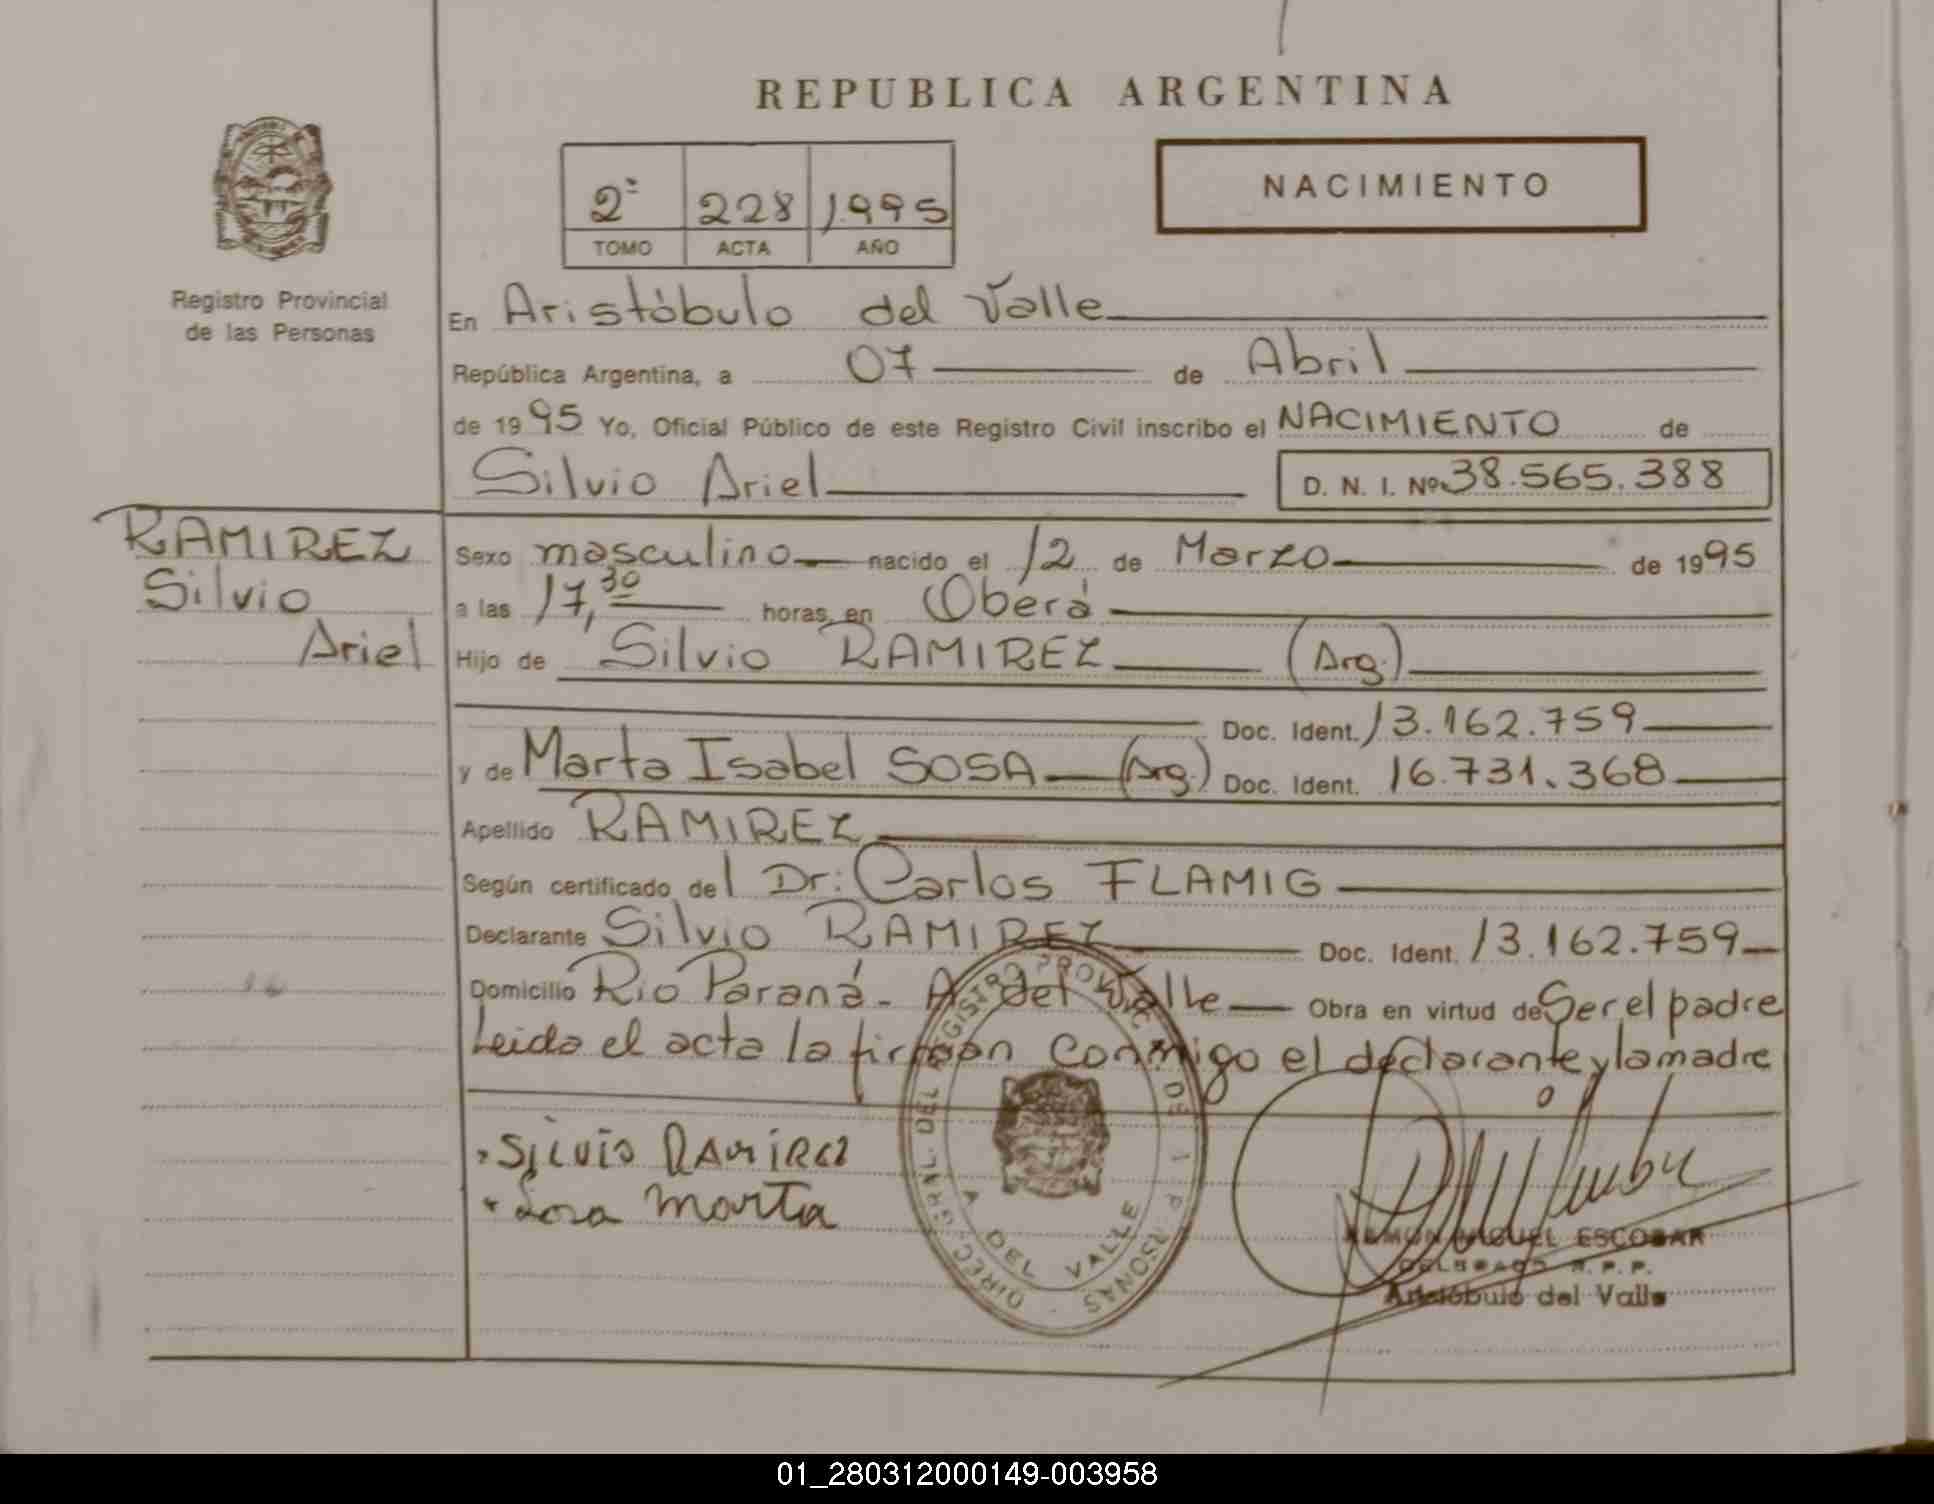 REPUBLICA ARGENTINA
NACIMIENTO
2º 228 1995
TOMO ACTA AÑO
Registro Provincial
de las Personas
En Aristóbulo del Valle
República Argentina, a 07 de Abril
de 1995 Yo, Oficial Público de este Registro Civil inscribo el NACIMIENTO de
Silvio Ariel D. N. I. Nº 38.565.388
RAMIREZ
Silvio
Ariel
Sexo masculino nacido el 12 de Marzo de 1995
a las 17,30 horas, en Oberá
Hijo de Silvio RAMIREZ (Arg.)
Doc. Ident. 13.162.759
y de Marta Isabel SOSA (Arg.) Doc. Ident. 16.731.368
Apellido RAMIREZ
Según certificado del Dr: Carlos FLAMIG
Declarante Silvio RAMIREZ Doc. Ident. 13.162.759
Domicilio Río Paraná - A. del Valle Obra en virtud de Ser el padre
Leida el acta la firman conmigo el declarante y la madre
Silvio Ramirez
Sosa Marta
DIRECC. GRAL. DEL REGISTRO PROVINC. DE L PERSONAS
A DEL VALLE
RAMON MIGUEL ESCOBAR
DELEGADO R.P.P.
Aristóbulo del Valle
01_280312000149-003958